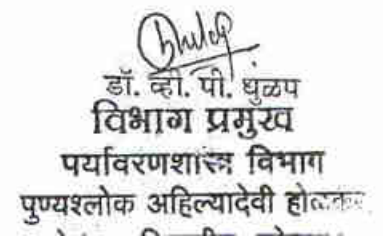 डॉ. व्ही. पी. धुळप
विभाग प्रमुख
पर्यावरणशास्त्र विभाग
पुण्यश्लोक अहिल्यादेवी होळकर